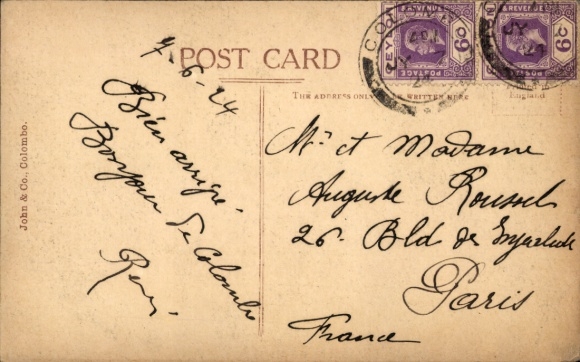 POST CARD
THE ADDRESS ONLY
WRITTEN HERE
England
John & Co., Colombo.
7-6-24
Bien arrivé.
Bonjour de Colombo
René
Mr et Madame
Auguste Roussel
26. Bld de
Paris
France
& REVENUE
CEYLON
POSTAGE
6C
& REVENUE
POSTAGE
6C